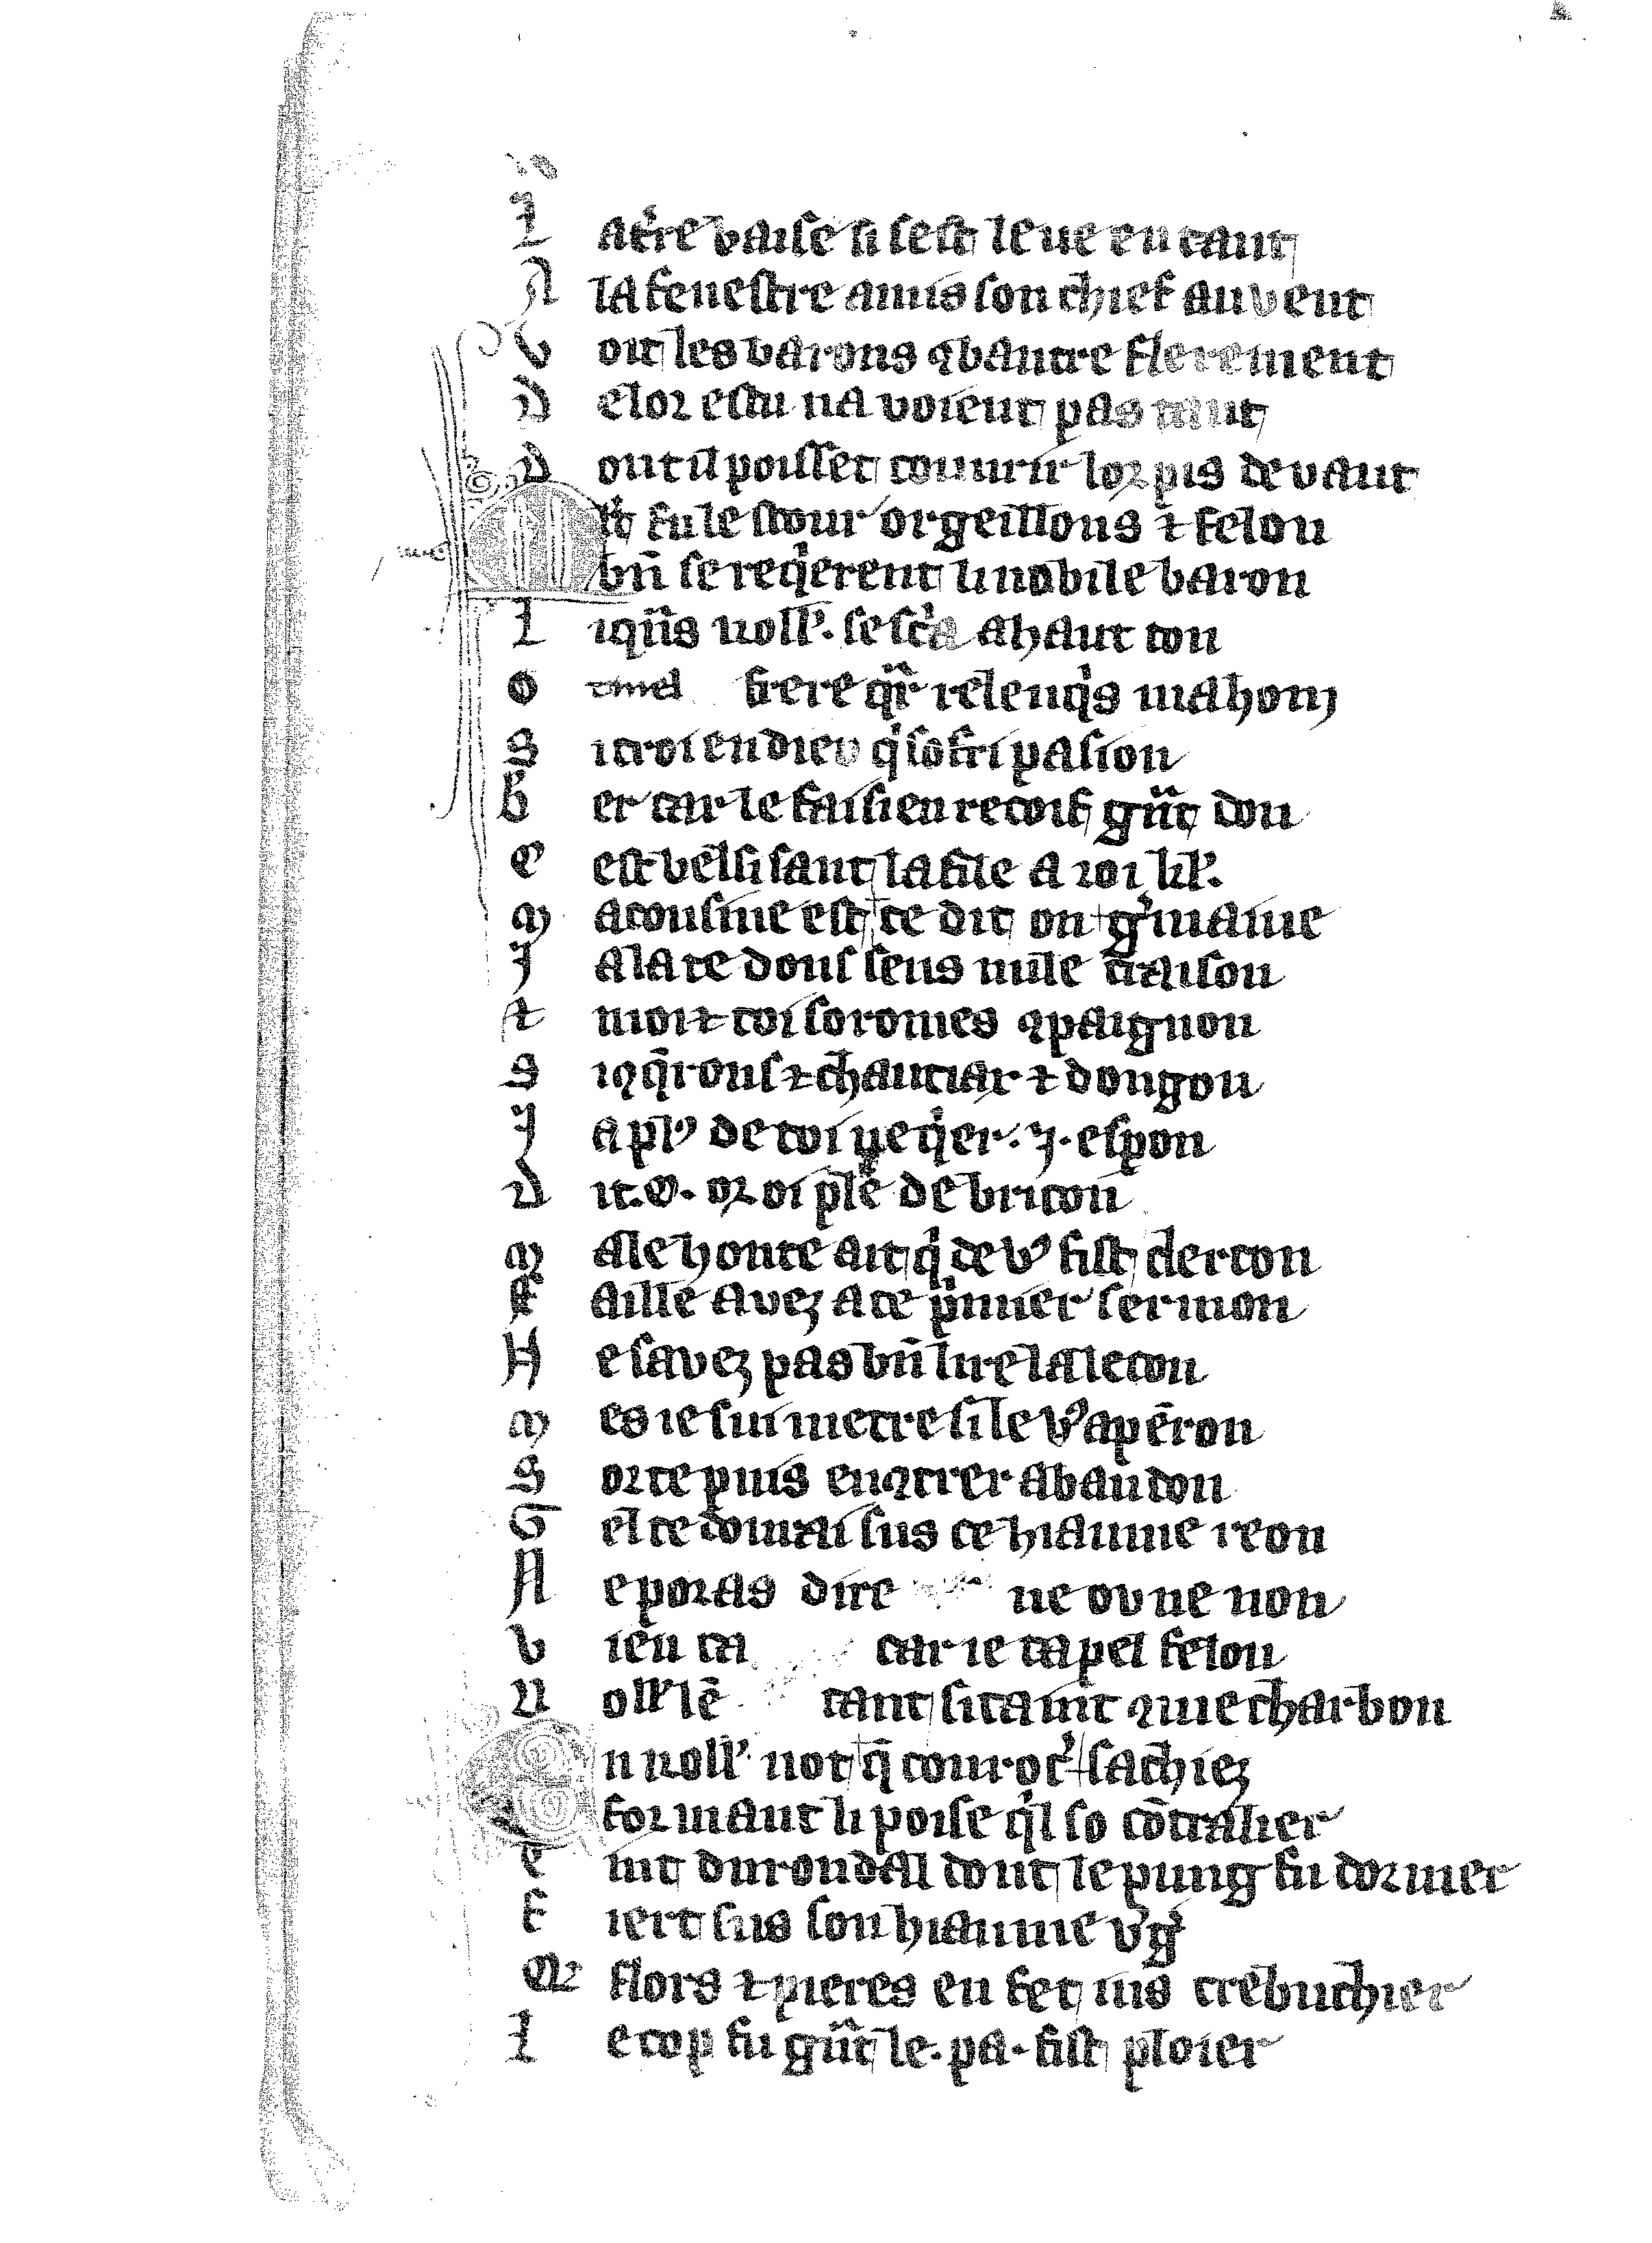 L at̾re baise si sest leue en tant
A la fenestre a mis son chief au vent
V oit les barons ꝯbatre fierement
D e lor escu n a voient pas tant
D ont il poisset couurir lor pis devant
M lt̾ fu le stour orgeillous ⁊ felon
bn̄ se reqͥerent li nobile baron
L i qͣns roll'. sesc̾a a haut ton
O tinel frere qͣr relenqͥs mahom
S i croi en diev qͥ sofri pasion
B er car le fai si en recoif gͣnt don
C est belissant la file a roi kl'.
M a cousine est ce dit on g̾maine
J a la te dons sens nule traison
⁊ moi ⁊ toi seromes ꝯpaignon
S i ꝯq̄rons ⁊ chautiar ⁊ dongon
J a plꝰ de toi ne qͥer .j. espon
D it .O. or oi ple de bricon
M ale honte ait qͥ de vꝰ fist clercon
F aille avez a ce pͥmier sermon
N e savez pas bn̄ lire la lecon
M es ie sui metre si le v̾ apēron
S or ce puis enꝯtrer a bandon
T el te donrai sus ce hiaume reon
N e poras dire ne ov ne non
B ien ta car ie tapel felon
R oll' lē tant si taint ꝯme charbon
E n roll' not q̄ couroc̾ sachiez
formant li poise qͥl so cōtralier
T int durondal dont le pung fu dormier
F iert sus son hiaume v̾gͥ
Q̄ flors ⁊ pieres en fet ius trebuchier
L e cop fu gͣnt le .pa. fist ploier